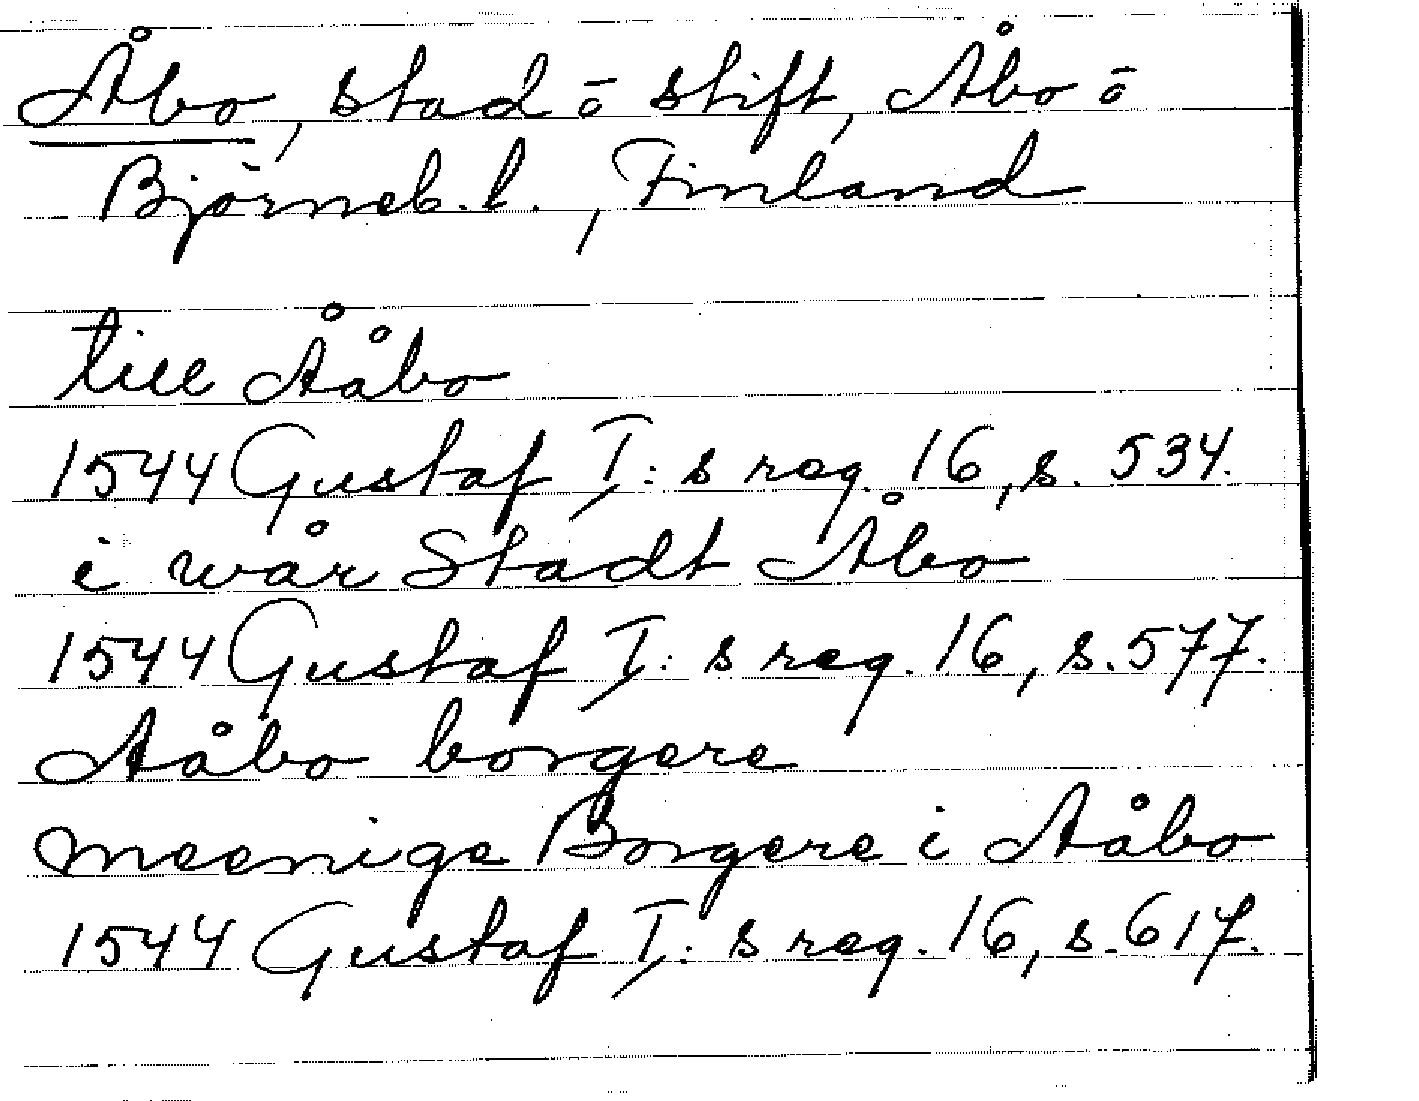 Åbo, stad o stift, Åbo o
Björneb. l., Finland
till Ååbo
1544 Gustaf I:s reg. 16, s. 534.
i wår Stadt Åbo
1544 Gustaf I:s reg. 16, s. 577.
Aåbo borgere
meenige Borgere i Aåbo
1544 Gustaf I:s reg. 16, s. 617.